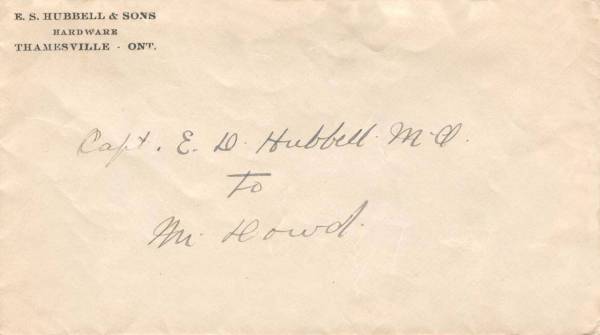 E. S. HUBBELL & SONS
HARDWARE
THAMESVILLE - ONT.
Capt. E. D. Hubbell M.D.
To
Mr. Howd.